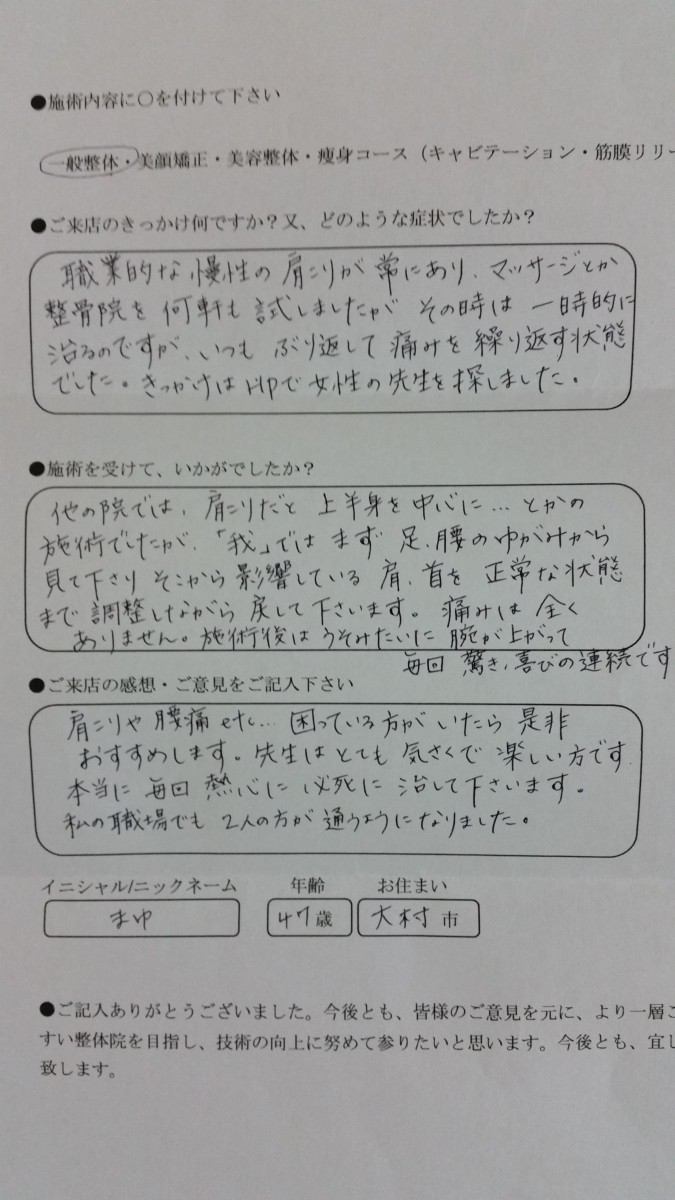 ●施術内容に〇を付けて下さい
一般整体・美顔矯正・美容整体・痩身コース（キャビテーション・筋膜リリー
●ご来店のきっかけ何ですか？又、どのような症状でしたか？
職業的な慢性の肩こりが常にあり、マッサージとか
整骨院を何軒も試しましたがその時は一時的に
治るのですが、いつもぶり返して痛みを繰り返す状態
でした。きっかけはHPで女性の先生を探しました。
●施術を受けて、いかがでしたか？
他の院では、肩こりだと上半身を中心に…とかの
施術でしたが、「我」ではまず足、腰のゆがみから
見て下さりそこから影響している肩、首を正常な状態
まで調整しながら戻して下さいます。痛みは全く
ありません。施術後はうそみたいに腕が上がって
毎回驚き、喜びの連続です
●ご来店の感想・ご意見をご記入下さい
肩こりや腰痛etc…困っている方がいたら是非
おすすめします。先生はとても気さくで楽しい方です
本当に毎回熱心に必死に治して下さいます。
私の職場でも2人の方が通うようになりました。
イニシャル/ニックネーム 年齢 お住まい
まゆ 47歳 大村市
●ご記入ありがとうございました。今後とも、皆様のご意見を元に、より一層こ
すい整体院を目指し、技術の向上に努めて参りたいと思います。今後とも、宜し
致します。